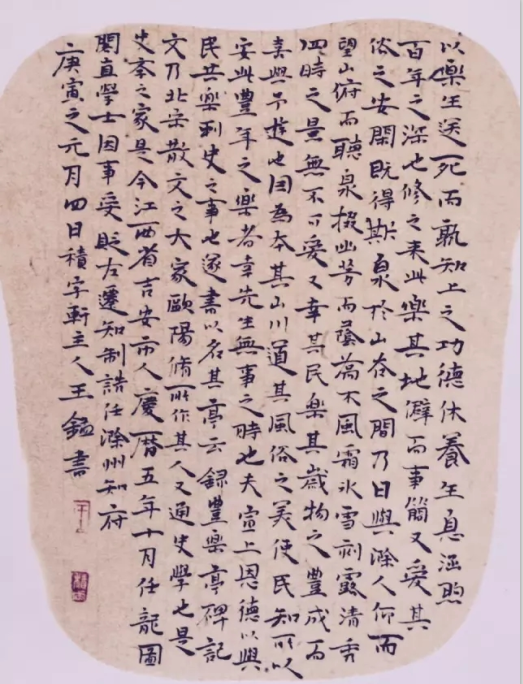 以樂生送死而孰知上之功德休養生息涵煦
百年之深也修之来此樂其地僻而事簡又爱其
俗之安閑既得斯泉於山谷之間乃日與滁人仰而
望山俯而聽泉掇幽芳而蔭喬木風霜冰雪刻露清秀
四時之景無不可爱又幸其民樂其歲物之豐成而
喜與予遊也因為本其山川道其風俗之美使民知所以
安此豐年之樂者幸先生無事之時也夫宣上恩德以與
民共樂刺史之事也遂書以名其亭云 録豐樂亭碑記
文乃北宋散文之大家歐陽脩所作其人又通史學也是
史之家是今江西省吉安市人慶曆五年十月任龍圖
閣直學士因事受貶左遷知制誥任滁州知府
庚寅之元月四日積字軒主人王書